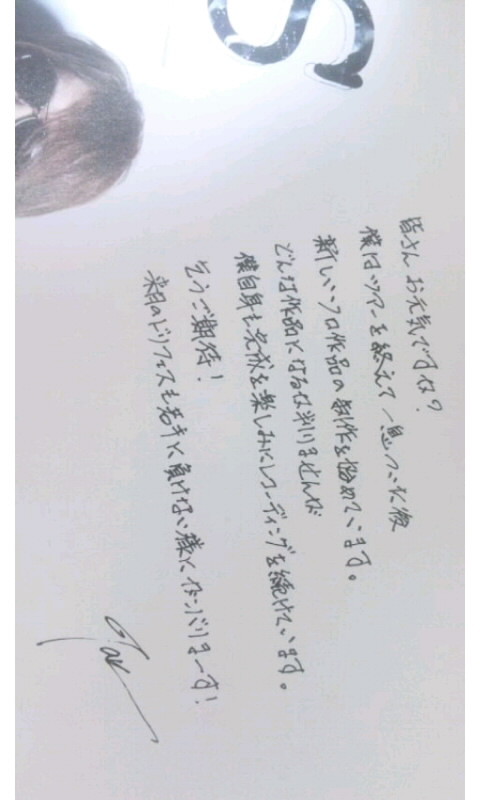 S
皆さんお元気ですか?
僕はツアーを終えて一息ついた後
新しいソロ作品の制作を始めています。
どんな作品になるか判りませんが
僕自身も完成を楽しみにレコーディングを続けています。
乞うご期待!
来月のドリフェスも若手に負けない様にガンバりまーす!
Tak